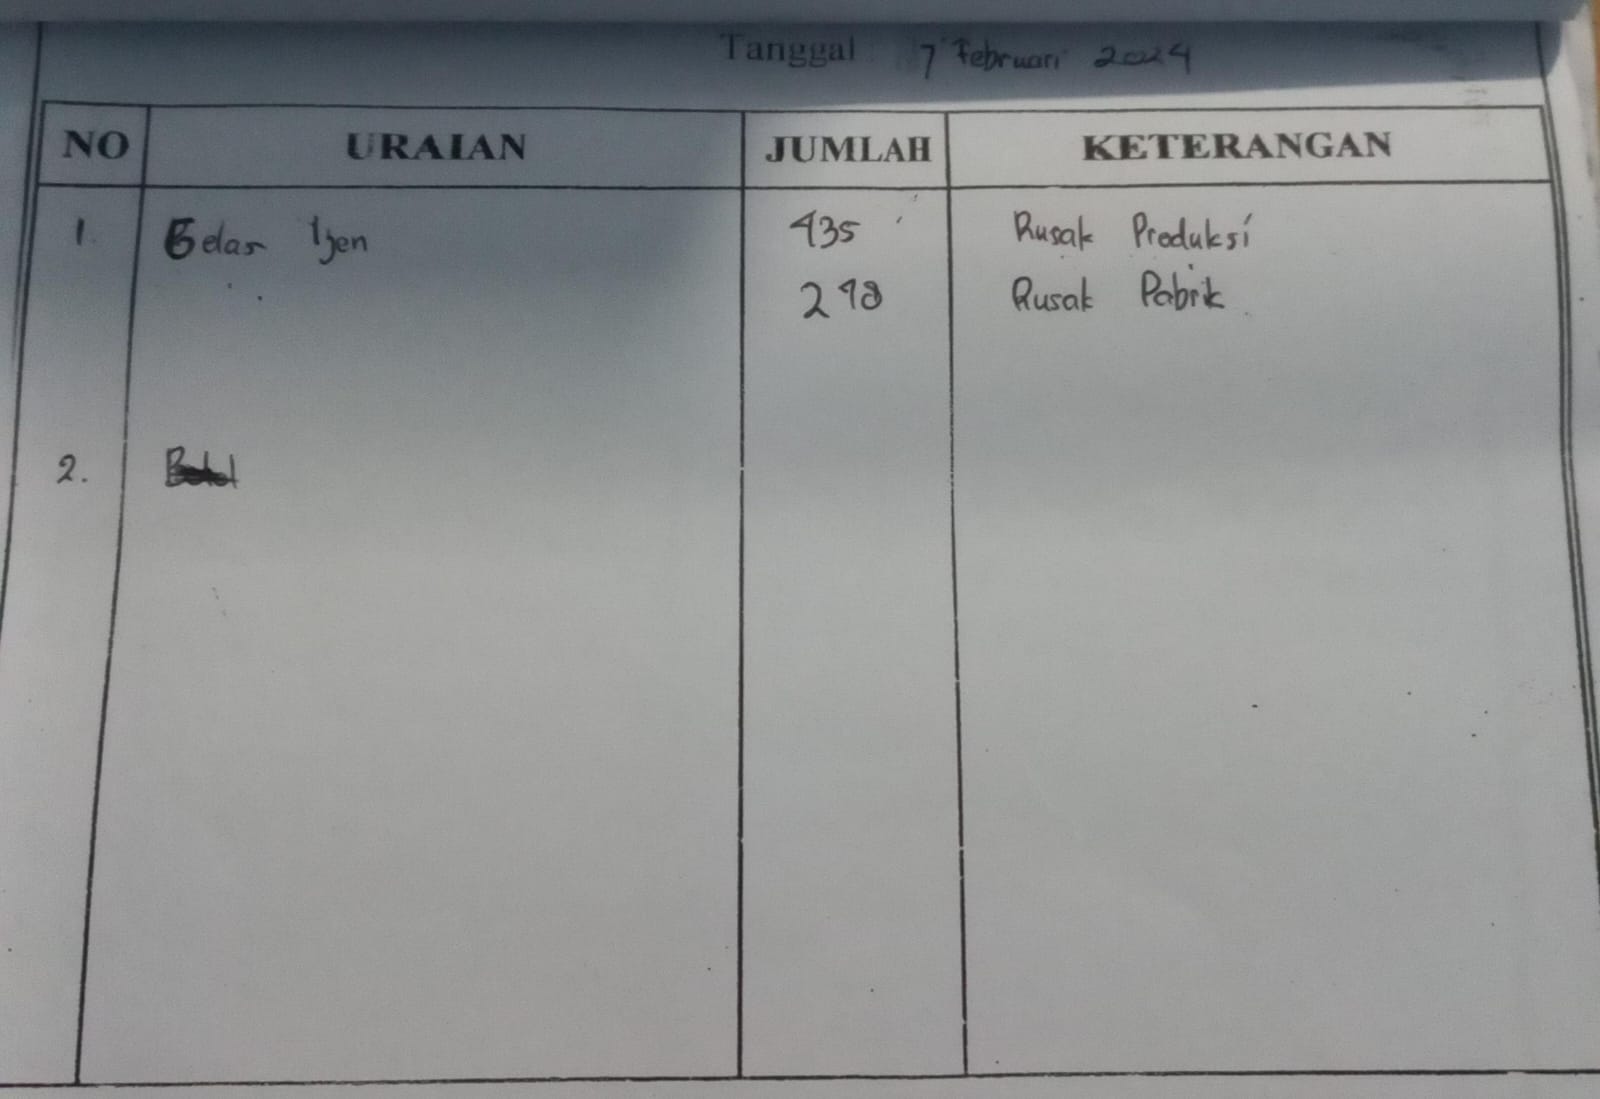 Tanggal 7 Februari 2024
NO URAIAN JUMLAH KETERANGAN
1. Gelas Ijen 435 Rusak Produksi
298 Rusak Pabrik
2.